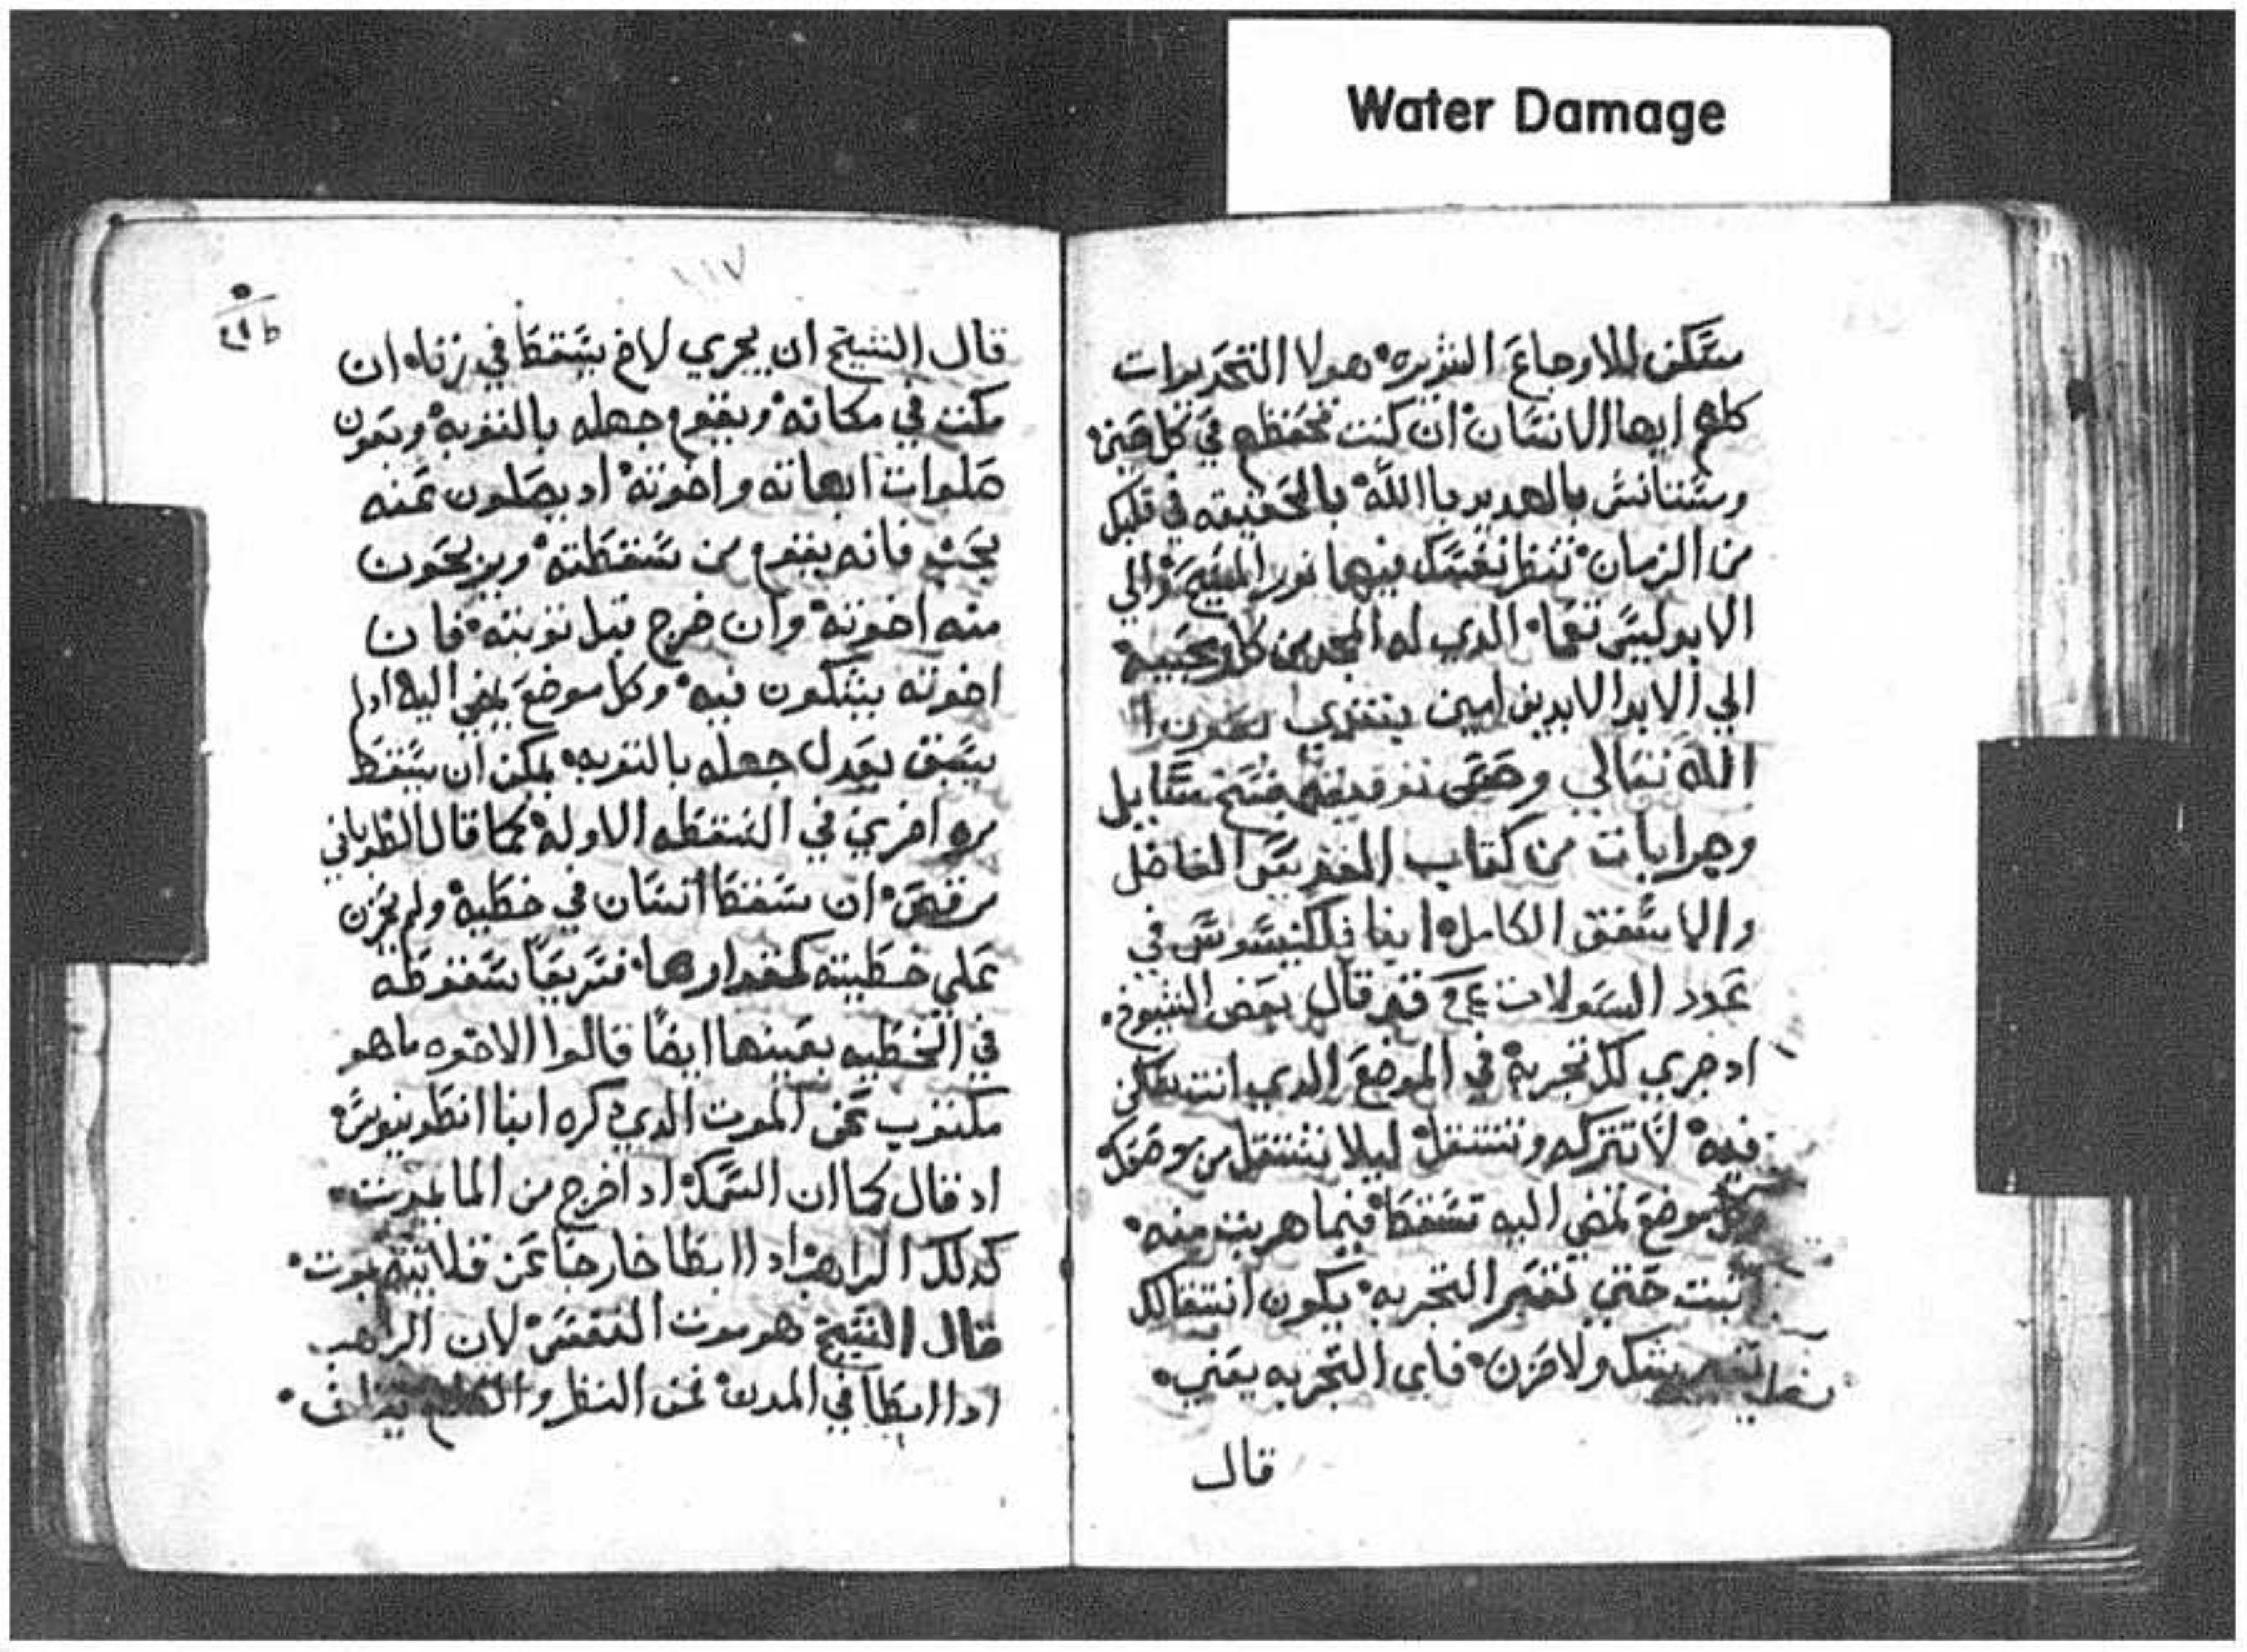 Water Damage
مسكن للاوجاع الشريره هولا التحديرات
كلهم ايها الانسان ان كنت تحفظهم في كل حين
وستانس بالهديد باالله بالحقيقه في قلبك
من الزمان تنظر نفسك فيها نور المسيح والي
الابد ليس تعما الدي له المجد من كل
الي الابد الابدين امين نبتدي بعون
الله تعالي وحسن توفيقه بنسخ مسايل
وجوابات من كتاب القديس الفاضل
والاسقف الكامل ابنا فيلكسينوس في
عدد السولات قال بعض الشيوخ
اد جري لك تجربه في الموضع الدي انت ساكن
فيه لا تتركه وتنتقل ليلا تنتقل من موضعك
وكل موضع تمضي اليه تسقط فيما هربت منه
اتبت حتي تعبر التجربه يكون انتقالك
بغير شك ولا حزن فاي التجربه يعني
قال
١١٧
قال الشيخ ان يجري لاخ يسقط في زناه ان
مكت في مكانه ويقوم جهله بالتوبه وبعون
صلوات ابهاته واخوته اد يصلون عنه
بحب فانه يقوم من سقطته ويربحون
منه اخوته وان خرج قبل توبته فان
اخوته يشكون فيه وكل موضع يمضي اليه ادا لم
يسبق يعدل جهله بالتوبه يمكن ان يسقط
مره اخري في السقطه الاوله كما قال الطوباني
مرقص ان سقط انسان في خطيه ولم يحزن
علي خطيته كمقدارها فسريعا سقوطه
في الخطيه بعينها ايضا قالوا الاخوه ما هو
مكتوب عن الموت الدي دكره ابنا انطونيوس
اد قال كما ان السمك ادا خرج من الما يموت
كدلك الراهب ادا ابطا خارجا عن قلايته يموت
قال الشيخ هو موت النفس لان الراهب
ادا ابطا في المدن عن النظر والكلام